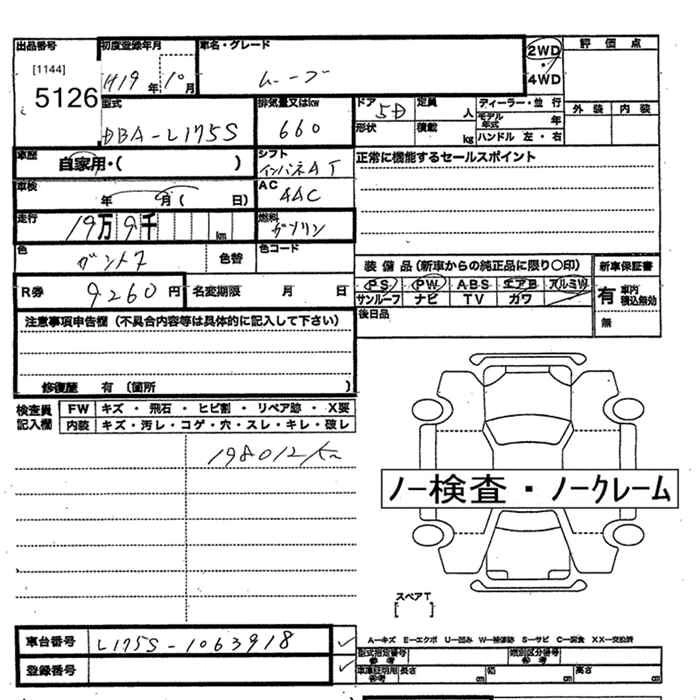 出品番号 初度登録年月 車名・グレード 2WD・4WD 評価点
[1144]
5126 H19年10月 ムーブ
型式 排気量又はkw ドア 5D 定員 人 ディーラー・並行 外装 内装
DBA-L175S 660 形状 積載 kg モデル年式 年
ハンドル 左・右
車歴 自家用・( ) シフト インパネAT 正常に機能するセールスポイント
車検 年 月( 日) AC AAC
走行 19万8千 km 燃料 ガソリン
色 色替 色コード
装備品(新車からの純正品に限り○印) 新車保証書
R券 9260円 名変期限 月 日 PS PW ABS エアB アルミW 有 車内 積込無効
サンルーフ ナビ TV カワ
注意事項申告欄(不具合内容等は具体的に記入して下さい) 後日品 無
修復歴 有(箇所 )
検査員記入欄 FW キズ・飛石・ヒビ割・リペア跡・X要
内装 キズ・汚レ・コゲ・穴・スレ・キレ・破レ
198012km
ノー検査・ノークレーム
スペアT
[ ]
車台番号 L175S-1063918 A-キズ E-エクボ U-凹み W-補修跡 S-サビ C-腐食 XX-交換済
型式指定番号 参考 類別区分番号 参考
登録番号 車庫証明用 参考 長さ cm 幅 cm 高さ cm